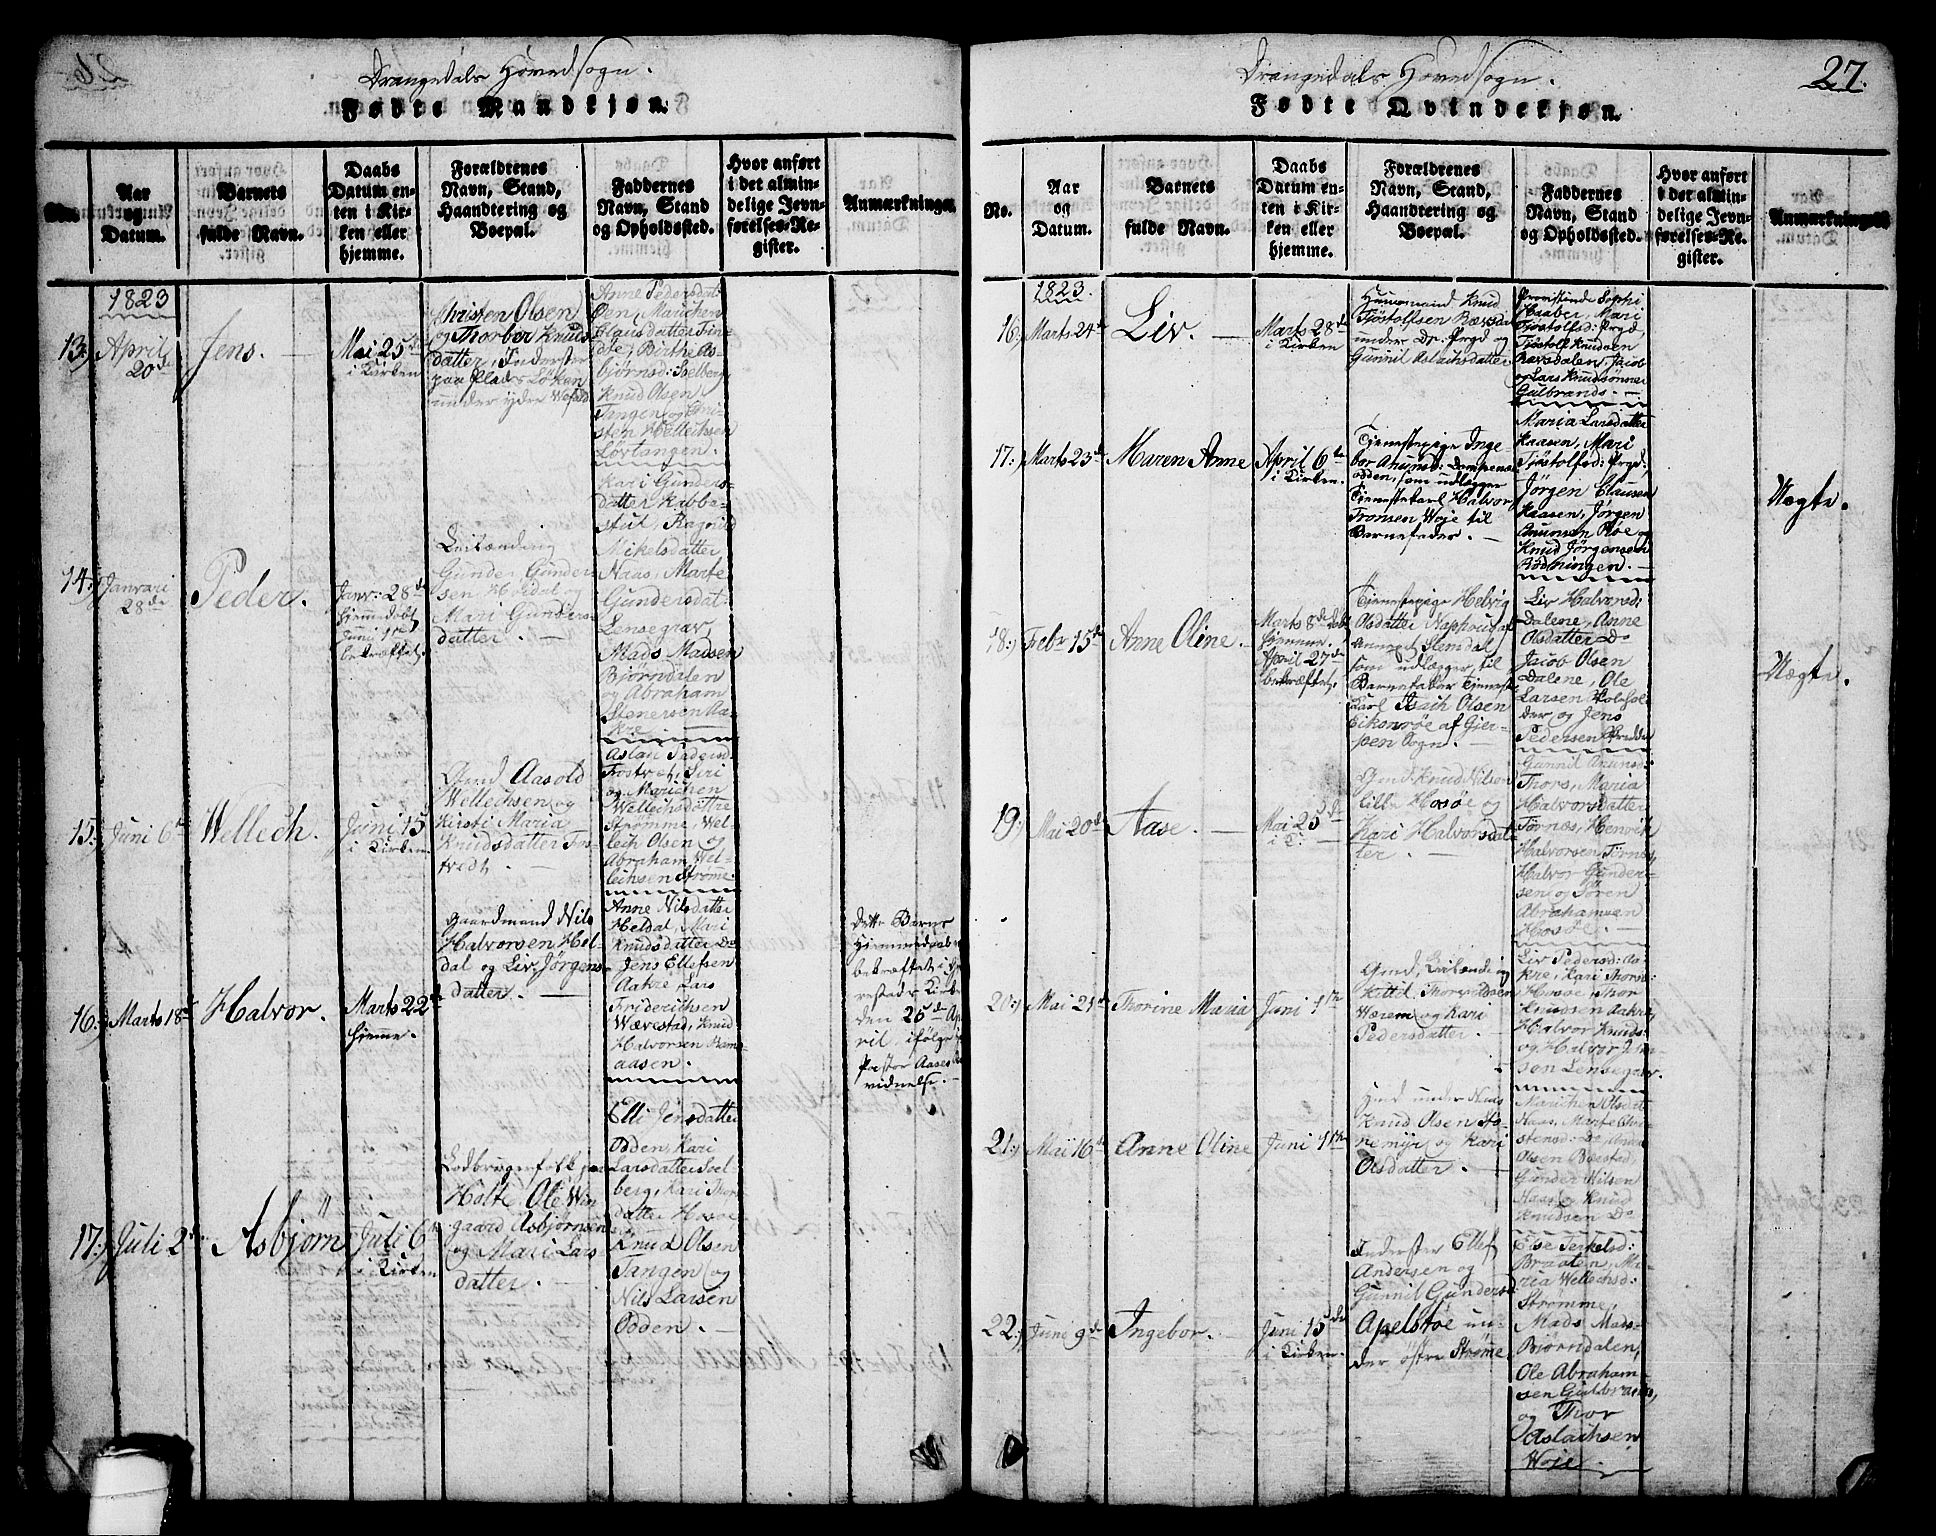 Drangedals Hovedsogn.
Fødte Mandkjøn.
No.
Aar
og
Datum.
Barnets
fulde Navn.
Daabs
Datum en-
ten i Kir-
ken eller
hjemme.
Forældrenes
Navn, Stand,
Haandtering og
Boepæl.
Faddernes
Navn, Stand
og Opholdssted.
Hvor anført
i det almin-
delige Jevn-
førelses-Re-
gister.
Anmærkninger
1823
13:)
April
20de
Jens.
Mai 25de
i Kirken
Christen Olsen
og Thorber Knuds
datter, Inderster
paa Plads Løkan
under ydre Wefald
Anne Pedersdat:
Øen, Marichen
Clausdatter
Birthe As-
bjørnsd: Soelberg
Knud Olsen
Tangen og Chri-
sten Hellechsen
Lørtangen.
14:)
Januari
28de
Peder.
Janr: 28de
hjemmedøbt
Juni 1te
bekræftet.
Leilænding
Gunder Gunder
sen Høidal og
Mari Gunders
datter.
Kari Gunders-
datter Kabbe-
stul, Ragnild
Mikelsdatter
Naas, Marte
Gundersdat-
Lensegrav,
Mads Madsen
Bjørndalen
og Abraham
Stenersen Aa-
kre
15:)
Juni 6te
Wellech.
Juni 15
i Kirken
Gmd Aasold
Wellechsen og
Kirsti Maria
Knudsdatter Fos-
tvedt.
Aslau Pedersd
Fostvet, Siri
og Marichen
Wellechsdattre
Strømme, Wel-
lech Olsen og
Abraham Wel-
lechsen Strøme.
16:)
Marts 18de
Halvor.
Marts 22de
hjemme.
Gaardmand Nils
Halvorsen Hel-
dal og Liv Jørgens
datter.
Anne Nilsdatter
Heldal, Mari
Knudsdatter Do
Jens Ellefsen
Aakre Lars
Friderichsen
Wærestad, Knud
Halvorsen Ram-
aasen.
Dette Barns
Hjemmedaab
bekræftet i
restads Kirke
den 26de Ap
ril ifølge
Pastor Aases
vidnelse.
17:)
Juli 2de
Asbjørn
Juli 6te
i Kirken
Lodbrugerfolk paa
Holte Ole Win
gaard Asbjørnsen
og Mari Lars
datter.
Elli Jensdatter
Odden, Kari
Larsdatter Soel-
berg, Kari Thors
datter Hosøe
Knud Olsen
Tangen og
Nils Larsen
Odden.
Drangedals Hovedsogn.
27.
Fødte Qvindekjøn.
No.
Aar
og
Datum.
Barnets
fulde Navn.
Daabs
Datum en-
ten i Kir-
ken eller
hjemme.
Forældrenes
Navn, Stand,
Haandtering og
Boepæl.
Faddernes
Navn, Stand
og Opholdssted.
Hvor anført
i det almin-
delige Jevn-
førelses-Re-
gister.
Anmærkninger
1823.
16:)
Marts 24de
Liv.
Marts 28de
i Kirken
Huusmand Knud
Tjøstolfsen Rævsdal
under Dr. Prgd og
Gunnil Aslachsdatter
Provstinde Sophi
Haaber, Mari
Tjøstolfsd: Prgd,
Tjøstolf Knudsen
Rævsdalen, Jacob
og Lars Knudsønner
Gulbrands.
17:)
Marts 23de
Maren Anne
April 6te
i Kirken.
Tjenestepige Inge-
bor Anunds:
odden, som udlægger
Tjenestekarl Halvor
Tronsen Woje til
Barnefader.
Maria Larsdatter
Kaasen, Mari
Tjøstolfsd: Prgd,
Jørgen Clausen
Kaasen, Jørgen
Anunsen Røe og
Knud Jørgensen
Rødningen.
Uægte.
18:)
Febr 15de
Anne Oline.
Marts 8de døbt
hjemme,
April 27de
bekræftet.
Tjenestepige Helvig
Olsdatter Naphoug af
Annexet Slemdal
som udlægger til
Barnefader Tjeneste
karl Isach Olsen
Eikonrøe af Gjer-
pen Sogn.
Liv Halvorsd:
Dalene, Anne
Olsdatter Do
Jacob Olsen
Dalene, Ole
Larsen Polehol-
der og Jens
Pedersen
Uægte.
19:)
Mai 20de
Aase.
Mai 25de
i K.
Gmd. Knud Nilsen
lille Hosøe og
Kari Halvorsdat-
ter.
Gunnil Anunsd:
Thors, Maria
Halvorsdatter
Tørnæs, Henrik
Halvorsen Tørnes
Halvor Gunder-
sen og Søren
Abrahamsen
Hosøe.
20:)
Mai 21de
Thorine Maria
Juni 1te
Gmd, Leilænding
Kittil Thorvaldsen
Wærem og Kari
Pedersdatter.
Liv Pedersd: Aa-
kre, Kari Thorsd:
Hosøe, Thor
Knudsen Aakre
Halvor Knuds-
og Halvor Jen-
sen Lensegrav.
21:)
Mai 16de
Anne Oline
Juni 1te
Hmd under Naas
Knud Olsen Sto-
nemyr og Kari
Olsdatter.
Marichen Olsdat
Naas, Marte Chri-
stensd: Do,
Olsen Bostad,
Gunder Nilsen
Naas og Knud
Knudsen Do
22:)
Juni 9de
Ingebor.
Juni 15de
i Kirken.
Inderster Ellef
Andersen og
Gunnil Gundersd
Apelstøe un-
der østre Strøme
Else Terkelsd:
Braaten, Ma-
ria Wellechsd:
Strømme,
Mads Mads-
Bjørndalen,
Ole Abraham-
sen Gulbrands,
og Thor
Aslachsen
Woje.